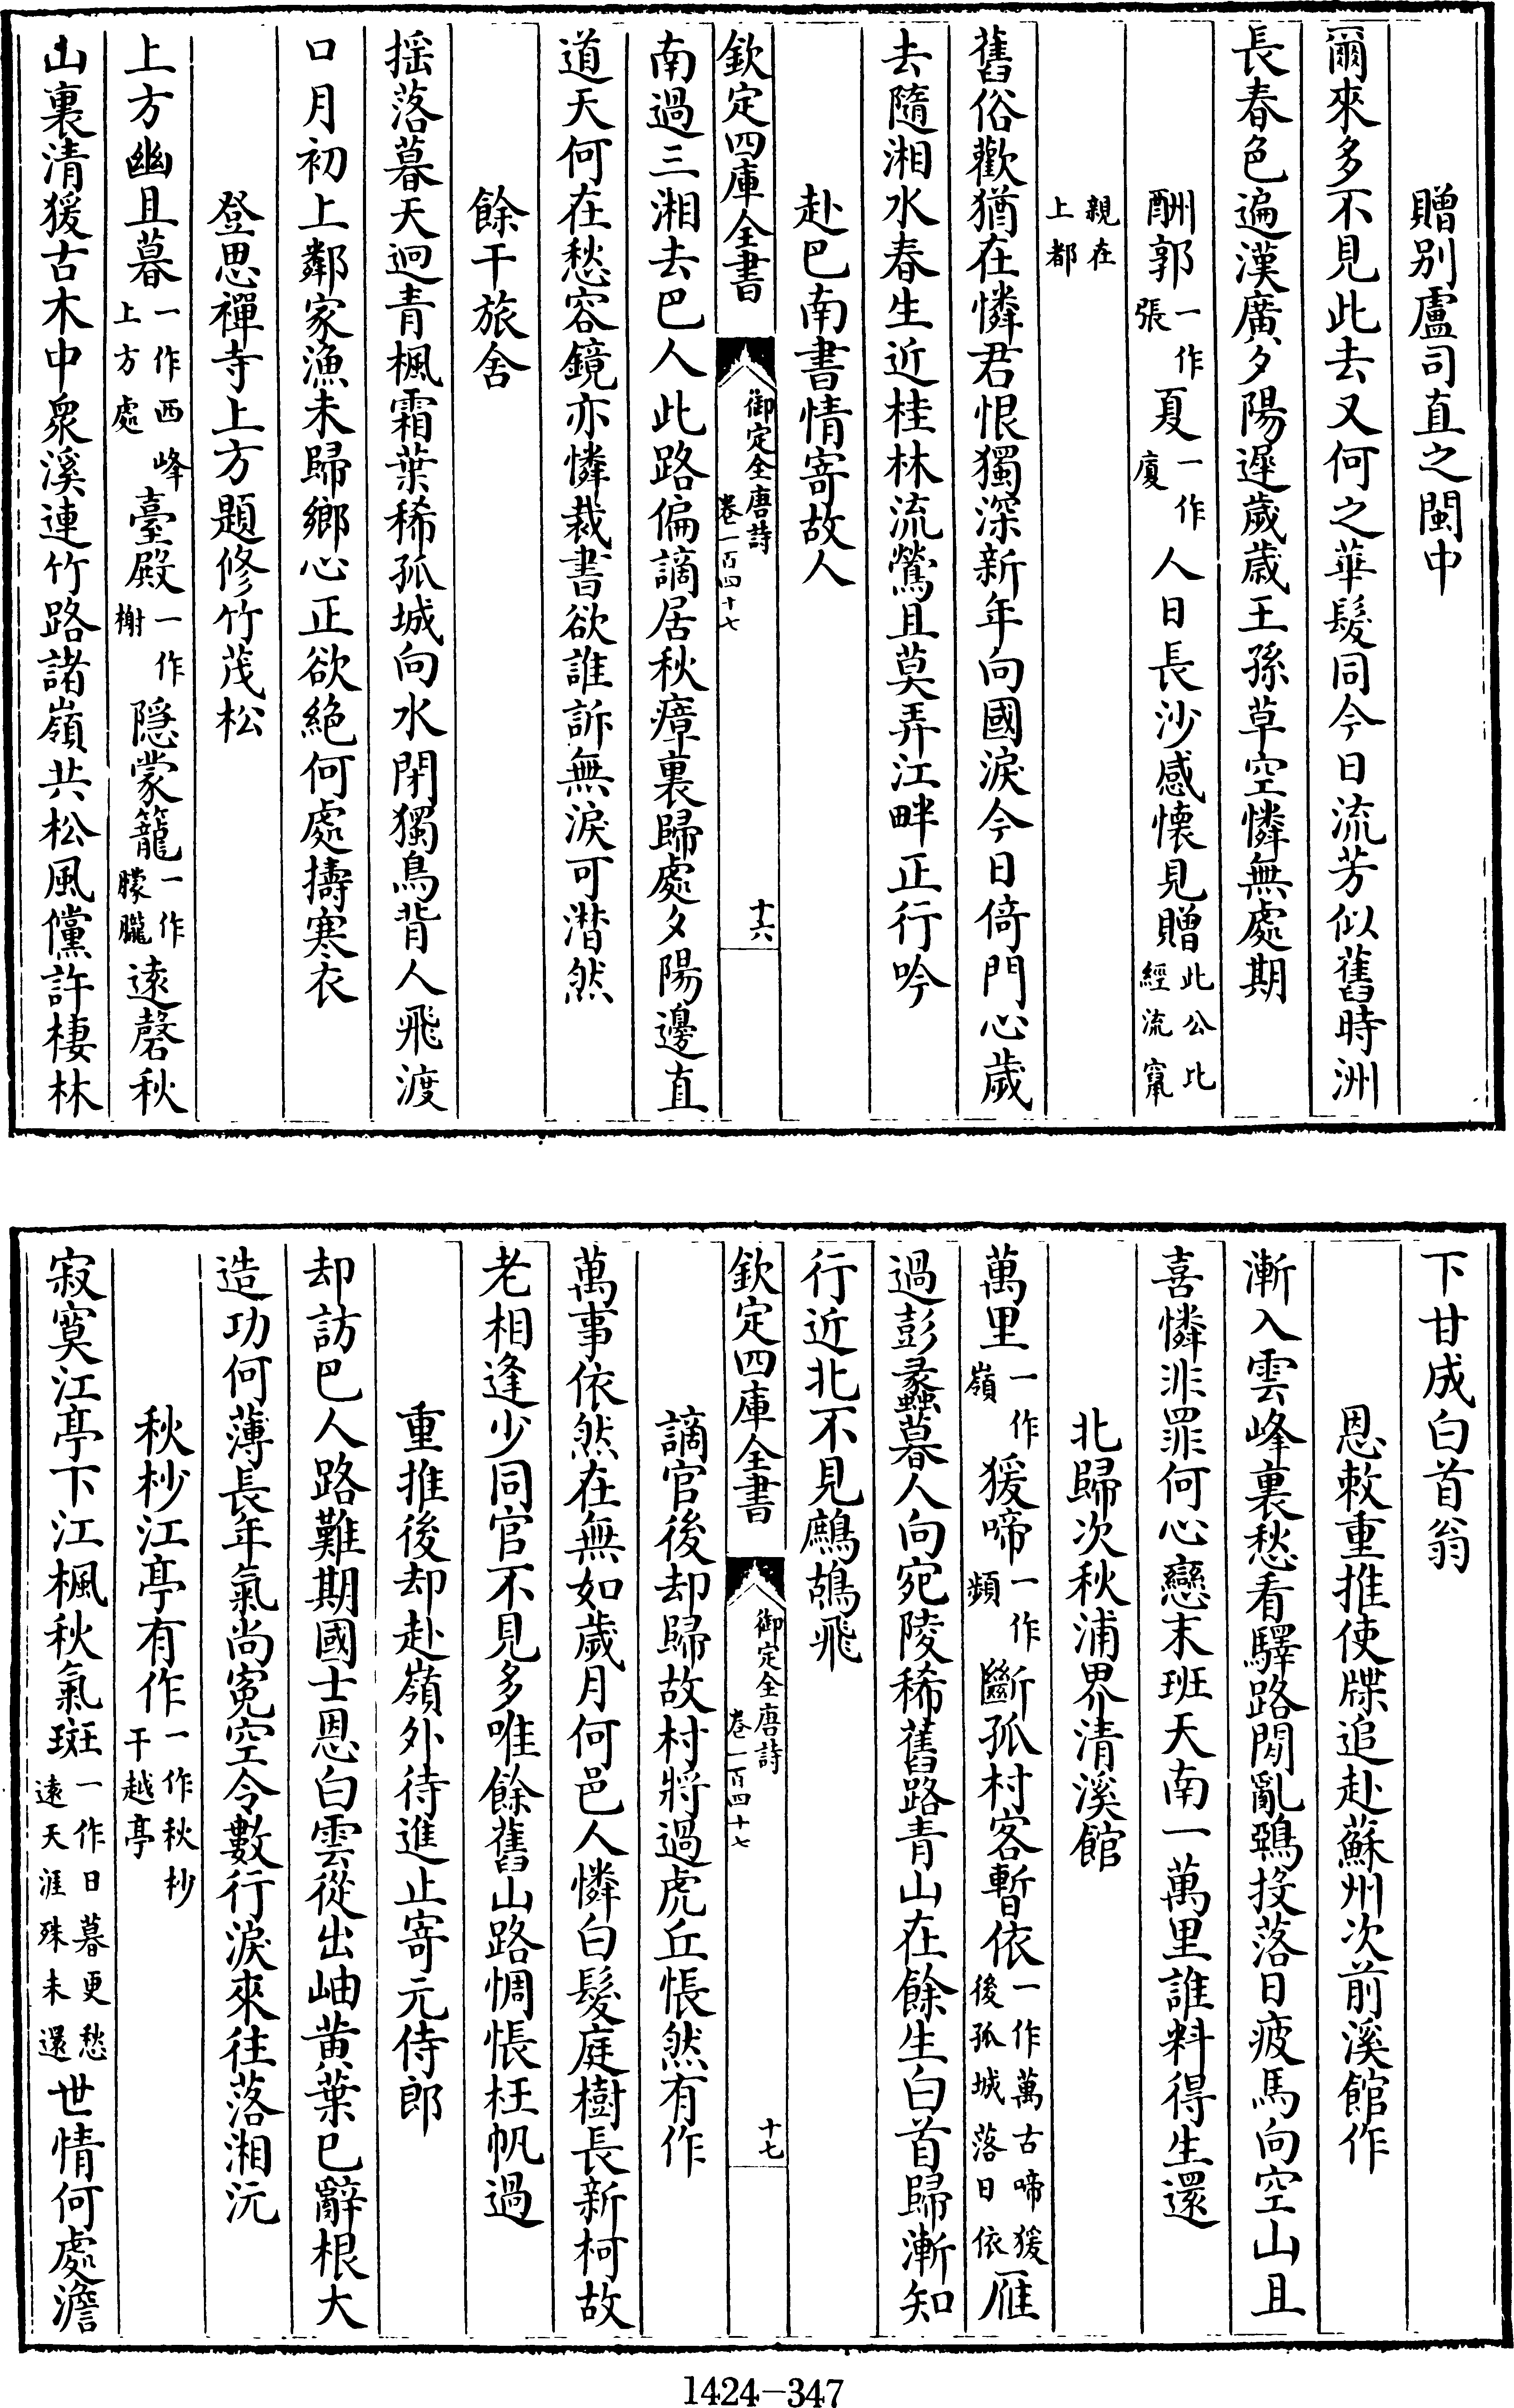 贈别盧司直之閩中
爾來多不見此去又何之華髮同今日流芳似舊時洲
長春色遍漢廣夕陽遲歲歲王孫草空憐無處期
酬郭一作張夏一作廈人日長沙感懷見贈此公比經流竄
親在上都
舊俗歡猶在憐君恨獨深新年向國淚今日倚門心歲
去隨湘水春生近桂林流鶯且莫弄江畔正行吟
赴巴南書情寄故人
欽定四庫全書 御定全唐詩卷一百四十七 十六
南過三湘去巴人此路偏謫居秋瘴裏歸處夕陽邊直
道天何在愁容鏡亦憐裁書欲誰訴無淚可潸然
餘干旅舍
揺落暮天迥青楓霜葉稀孤城向水閉獨鳥背人飛渡
口月初上鄰家漁未歸鄉心正欲絶何處擣寒衣
登思禪寺上方題修竹茂松
上方幽且暮一作西峰上方處臺殿一作榭隠蒙籠一作朦朧逺磬秋
山裏清猨古木中衆溪連竹路諸嶺共松風儻許棲林
下甘成白首翁
恩敕重推使牒追赴蘇州次前溪館作
漸入雲峰裏愁看驛路閒亂鵶投落日疲馬向空山且
喜憐非罪何心戀末班天南一萬里誰料得生還
北歸次秋浦界清溪館
萬里一作嶺猨啼一作頻斷孤村客暫依一作萬古啼猨後孤城落日依雁
過彭蠡暮人向宛陵稀舊路青山在餘生白首歸漸知
行近北不見鷓鴣飛
欽定四庫全書 御定全唐詩卷一百四十七 十七
謫官後却歸故村將過虎丘悵然有作
萬事依然在無如歲月何邑人憐白髮庭樹長新柯故
老相逢少同官不見多唯餘舊山路惆悵枉帆過
重推後却赴嶺外待進止寄元侍郎
却訪巴人路難期國士恩白雲從出岫黄葉已辭根大
造功何薄長年氣尚寃空令數行淚來往落湘沅
秋杪江亭有作一作秋杪干越亭
寂寞江亭下江楓秋氣斑一作日暮更愁逺天涯殊未還世情何處澹
1424-347